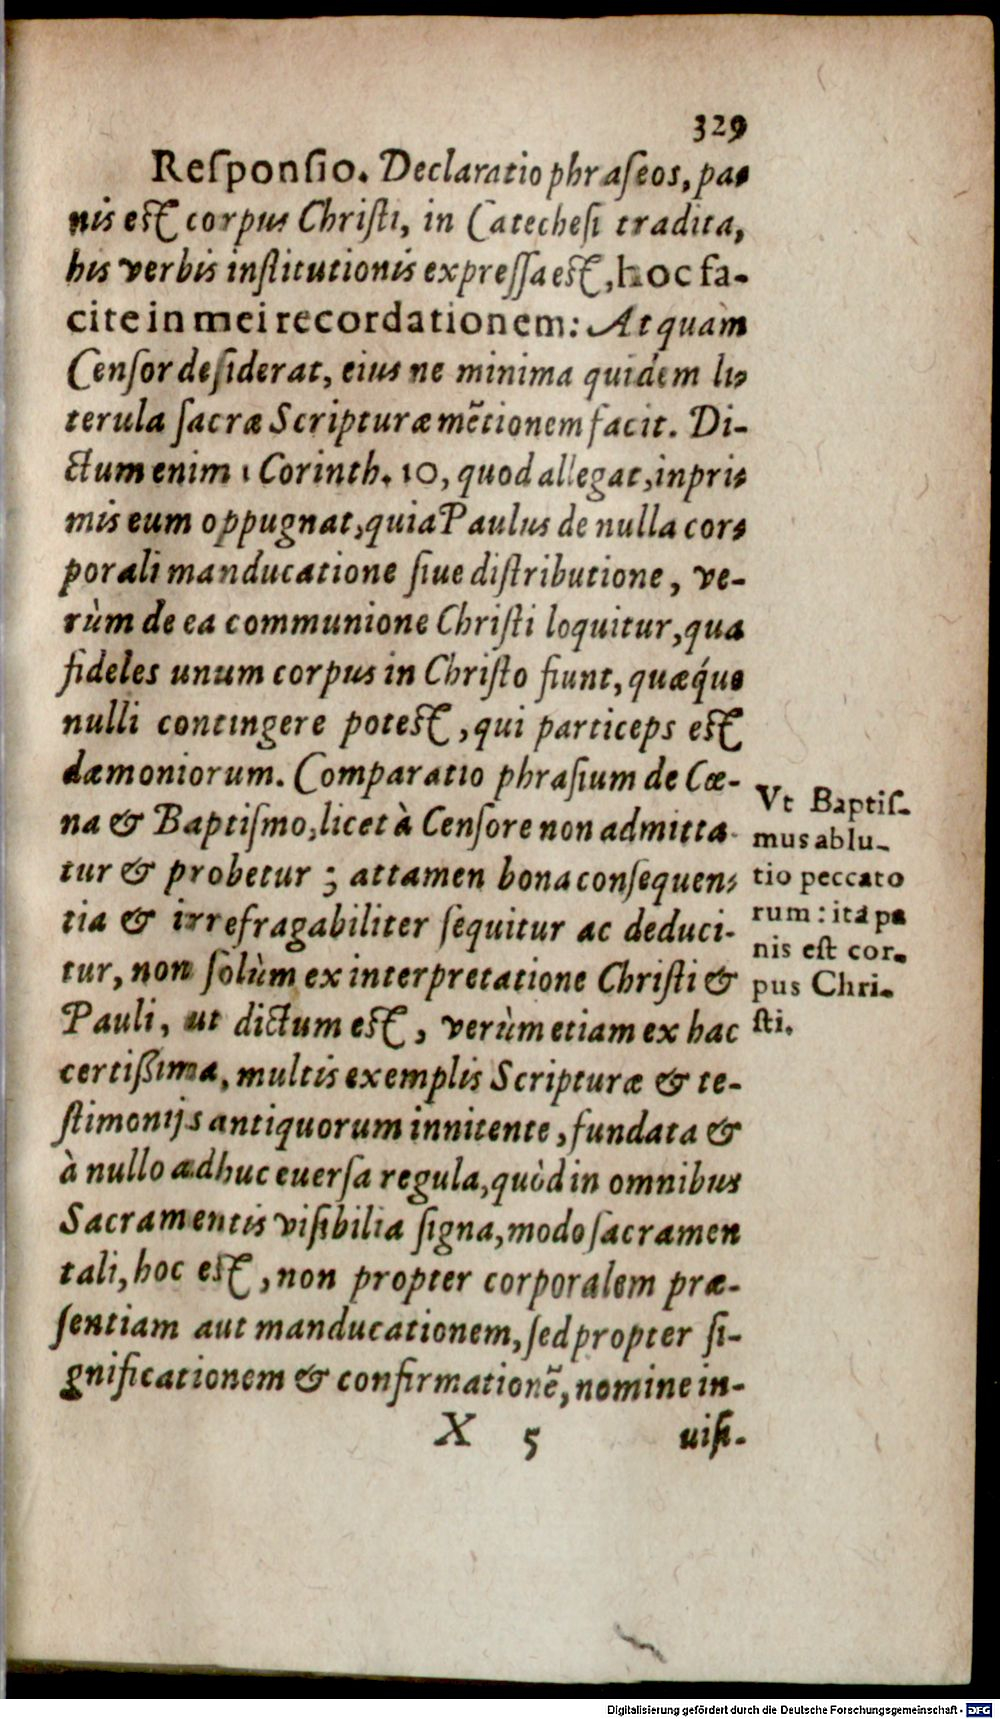 329
Reſponſio. Declaratio phraſeos, pa-
nis eſt corpus Chriſti, in Catecheſi tradita,
his verbis inſtitutionis expreſſa eſt, hoc fa-
cite in mei recordationem: At quàm
Cenſor deſiderat, eius ne minima quidem li-
terula ſacræ Scripturæ mẽtionem facit. Di-
ctum enim 1 Corinth. 10, quod allegat, inpri-
mis eum oppugnat, quia Paulus de nulla cor-
porali manducatione ſiue diſtributione, ve-
rùm de ea communione Chriſti loquitur, qua
fideles unum corpus in Chriſto fiunt, quæq́ue
nulli contingere poteſt, qui particeps eſt
dæmoniorum. Comparatio phraſium de Cœ-
na & Baptiſmo, licet à Cenſore non admitta-
tur & probetur; attamen bona conſequen-
tia & irrefragabiliter ſequitur ac deduci-
tur, non ſolùm ex interpretatione Chriſti &
Pauli, ut dictum eſt, verùm etiam ex hac
certißima, multis exemplis Scripturæ & te-
ſtimonijs antiquorum innitente, fundata &
à nullo adhuc euerſa regula, quòd in omnibus
Sacramentis viſibilia ſigna, modo ſacramen
tali, hoc eſt, non propter corporalem præ-
ſentiam aut manducationem, ſed propter ſi-
gnificationem & confirmationẽ, nomine in-
X 5 uiſi-
Vt Baptiſ-
mus ablu-
tio peccato
rum: ita pa
nis eſt cor-
pus Chri-
ſti.
Digitalisierung gefördert durch die Deutsche Forschungsgemeinschaft - DFG